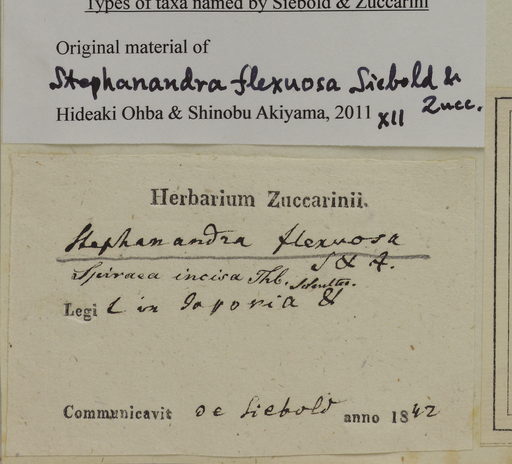 Types of taxa named by Siebold & Zuccarini
Original material of
Stephanandra flexuosa Siebold &
Zucc.
Hideaki Ohba & Shinobu Akiyama, 2011 XII
Herbarium Zuccarinii.
Stephanandra flexuosa
S & Z.
Spiraea incisa Thb.
Legi in Japonia
Communicavit de Siebold anno 1842